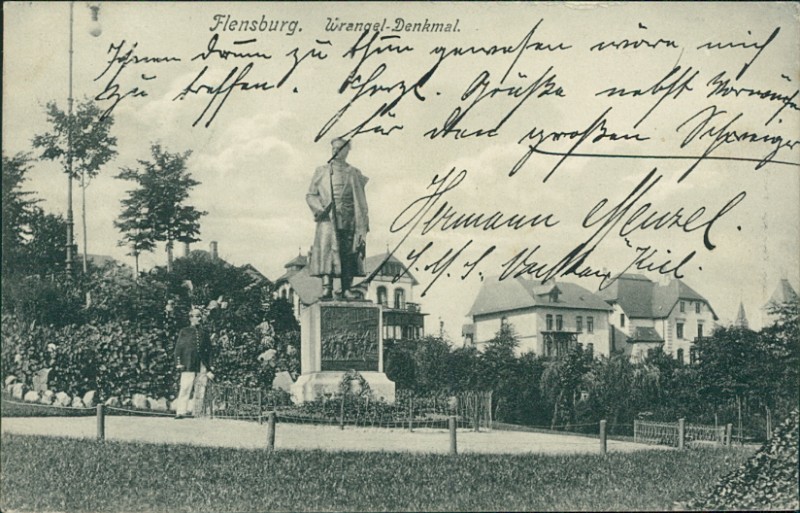 Flensburg. Wrangel-Denkmal.
Ihnen drum zu thun gewesen wäre, mich
zu treffen. Herzl. Grüße nebst Vorwürfe
für den großen Schweiger
Hermann Menzel.
S.M.S. Kiel.